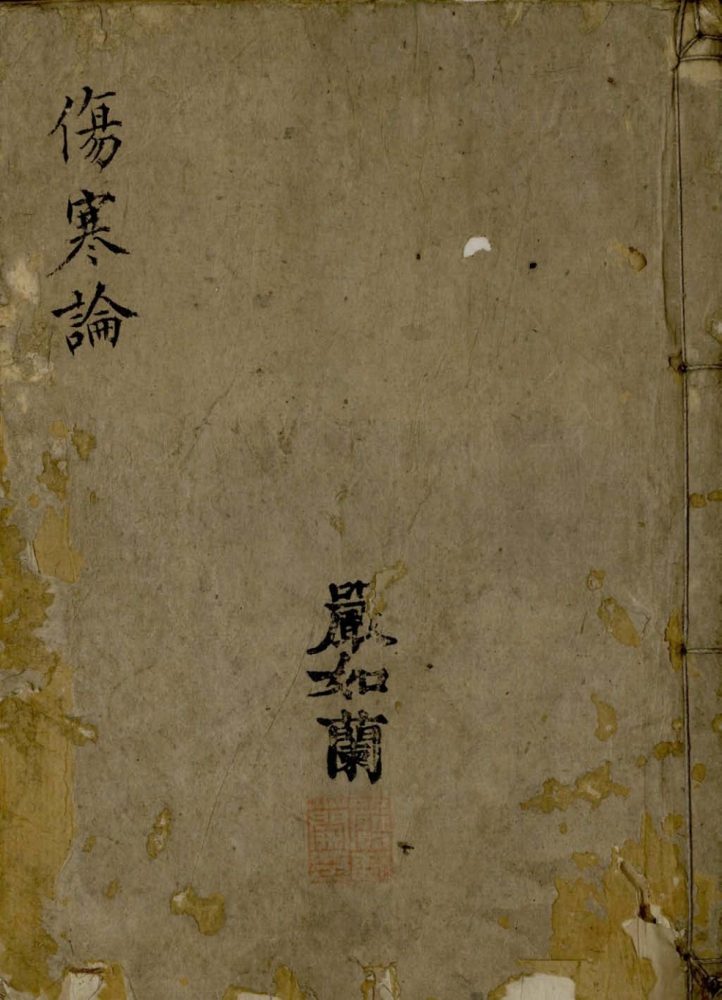 傷寒論
嚴如蘭